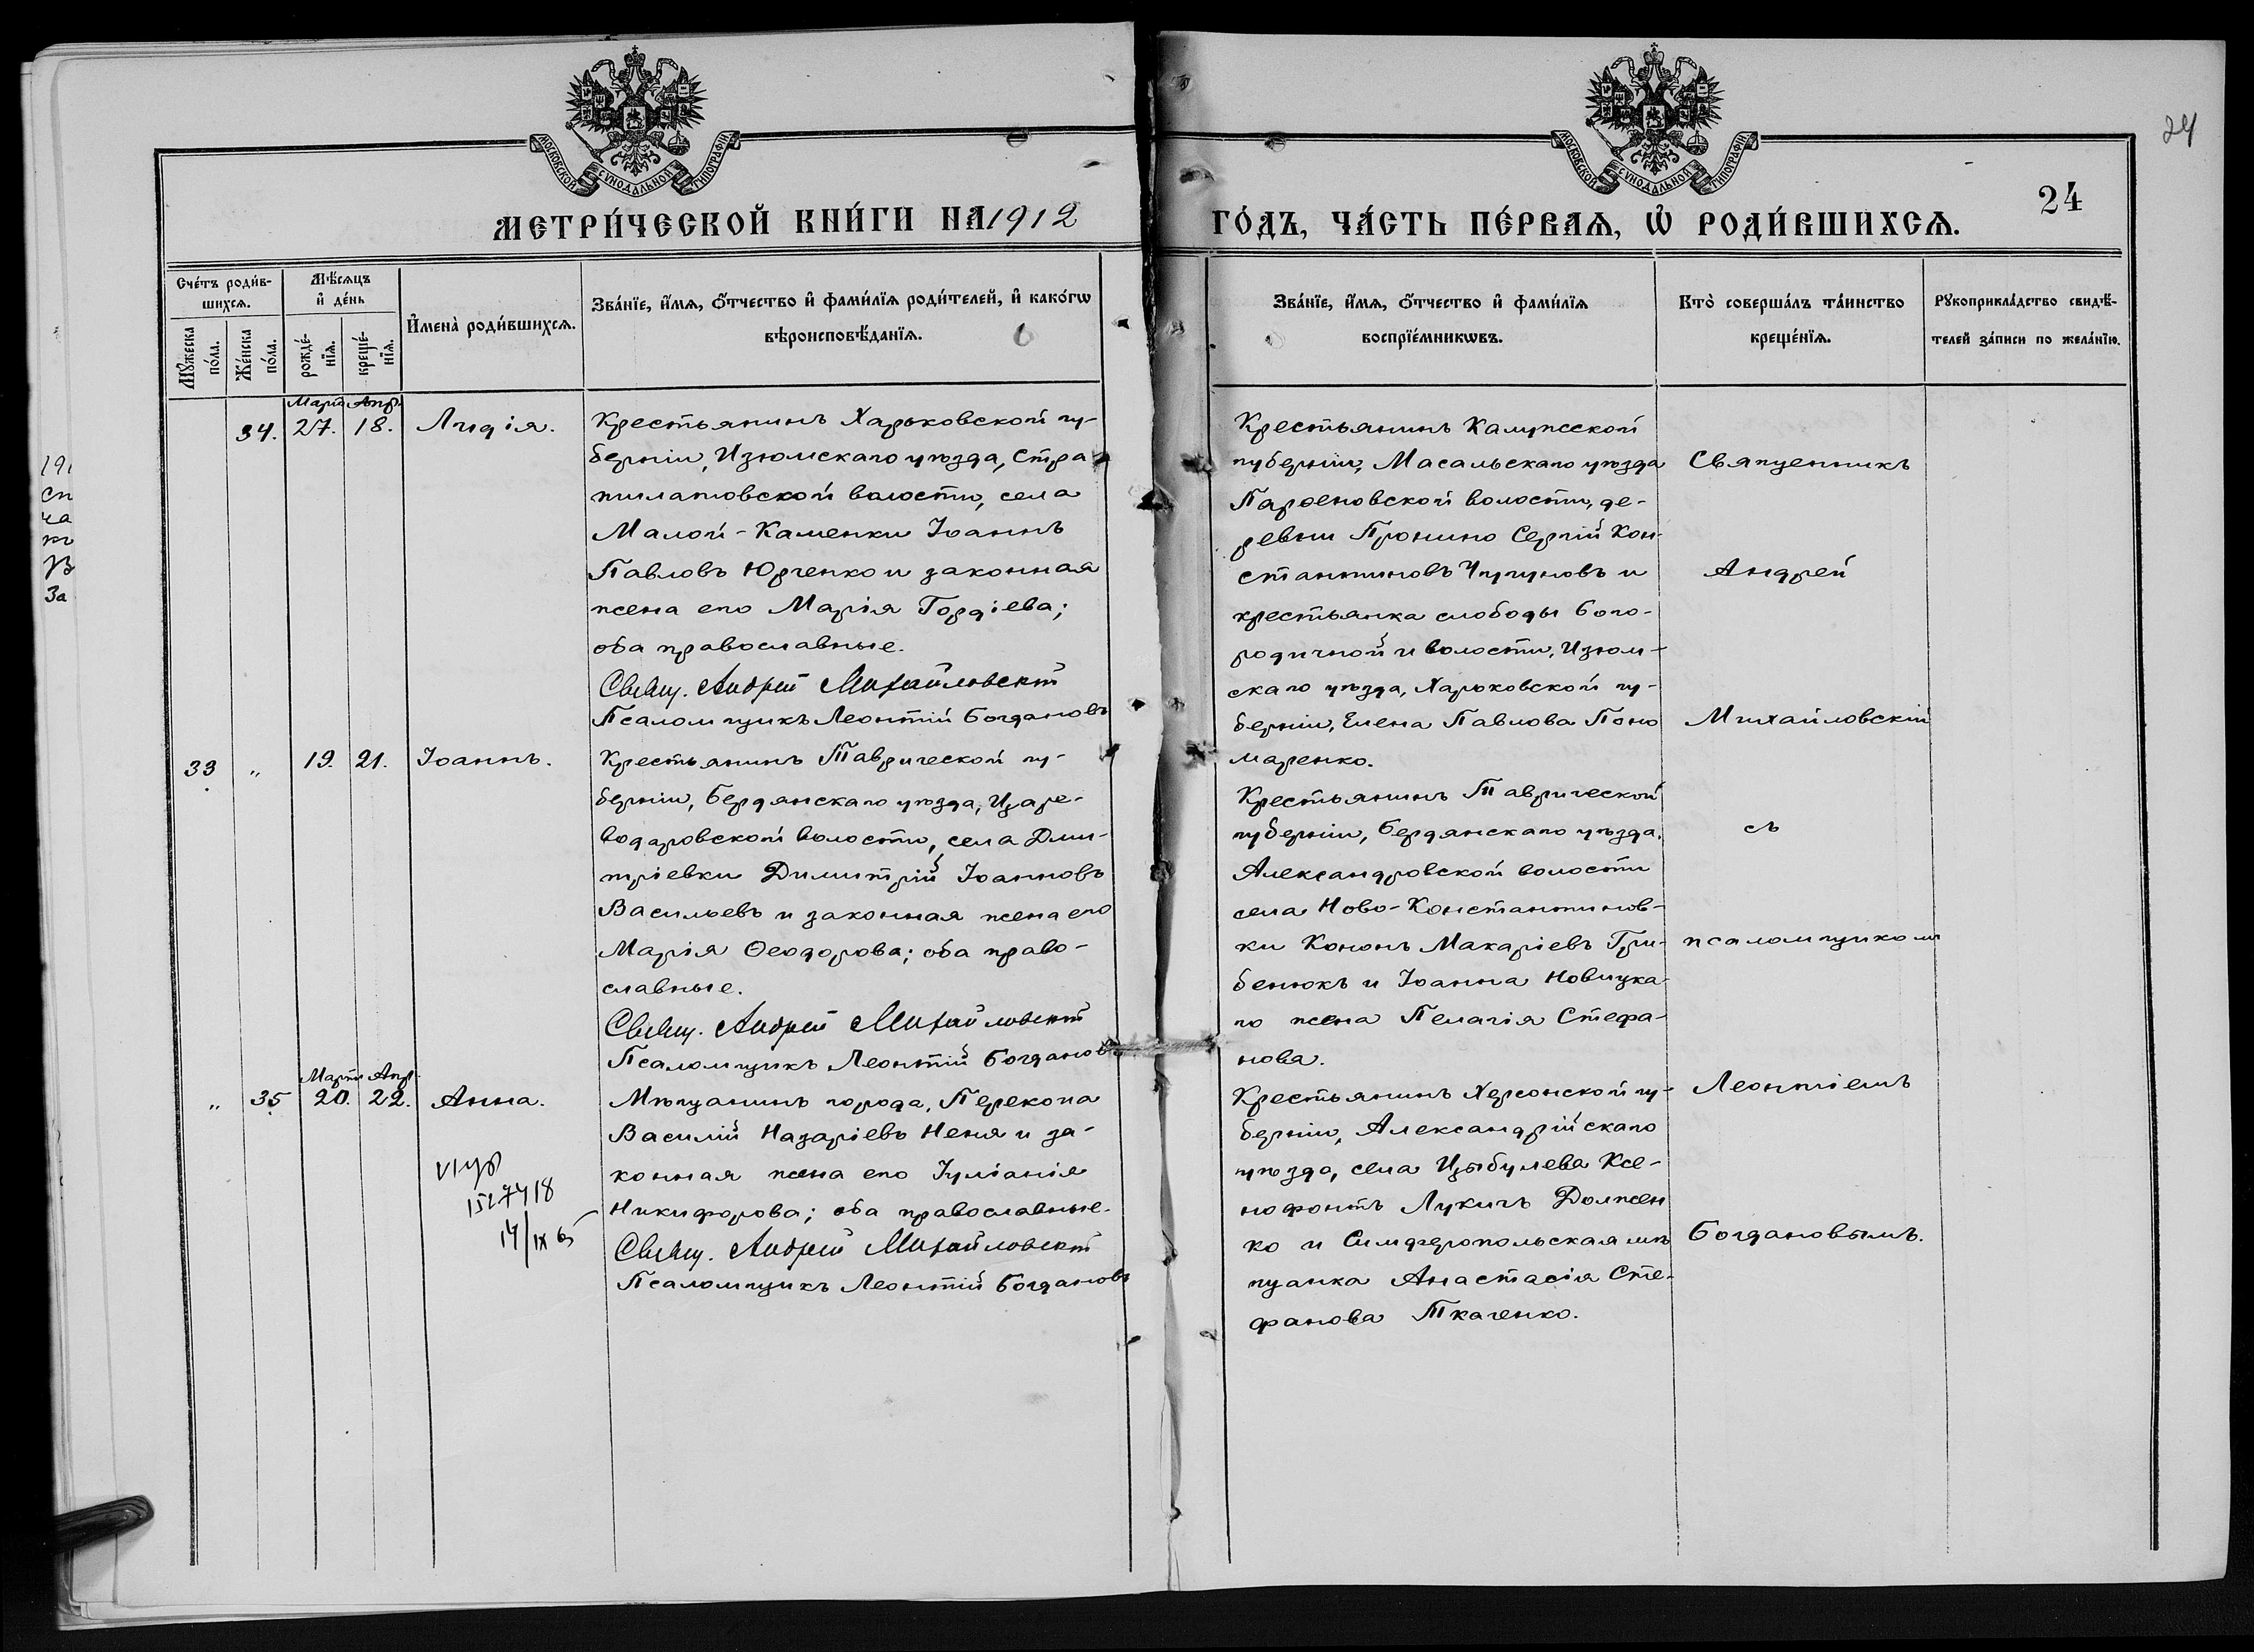 24
МОСКОВСКОЙ СѴНОДАЛЬНОЙ ТИПОГРАФІИ
МОСКОВСКОЙ СѴНОДАЛЬНОЙ ТИПОГРАФІИ
24
МЕТРИ́ЧЕСКОЙ КНИ́ГИ НА 1912
ГО́ДЪ, ЧА́СТЬ ПЕ́РВАѦ, Ѡ҆ РОДИ́ВШИХСѦ.
Сче́тъ роди́в-
шихсѧ.
Мꙋ́жеска по́ла.
Же́нска по́ла.
Мѣ́сѧцъ
и҆ де́нь
рожде́-
нїѧ.
креще́-
нїѧ.
И҆мена̀ роди́вшихсѧ.
Зва́нїе, и҆́мѧ, ѻ҆́тчество и҆ фами́лїѧ роди́телей, и҆ како́гѡ
вѣроисповѣ́данїѧ.
Зва́нїе, и҆́мѧ, ѻ҆́тчество и҆ фами́лїѧ
воспрїе́мникѡвъ.
Кто̀ соверша́лъ та́инство
креще́нїѧ.
Рꙋкоприкла́дство свидѣ́-
телей за́писи по жела́нїю.
Март. Апр.
34. 27. 18. Лидія.
Крестьянинъ Харьковской гу-
берніи, Изюмскаго уѣзда, Стра-
пилатовской волости, села
Малой-Каменки Іоаннъ
Павловъ Юрченко и законная
жена его Марія Гордіева;
оба православные.
Свящ. Андрей Михайловскій
Псаломщикъ Леонтій Богдановъ
Крестьянинъ Калужской
губерніи, Масальскаго уѣзда
Парѳеновской волости, де-
ревни Пронино Сергій Кон-
стантиновъ Чугуновъ и
крестьянка слободы Бого-
родичной и волости, Изюм-
скаго уѣзда, Харьковской гу-
берніи, Елена Павлова Поно
маренко.
Священникъ
Андрей
Михайловскій
33 " 19. 21. Іоаннъ.
Крестьянинъ Таврической гу-
берніи, Бердянскаго уѣзда, Царе-
водаровской волости, села Дми-
тріевки Димитрій Іоанновъ
Васильевъ и законная жена его
Марія Ѳеодорова; оба право-
славные.
Свящ. Андрей Михайловскій
Псаломщикъ Леонтій Богдановъ
Крестьянинъ Таврической
губерніи, Бердянскаго уѣзда.
Александровской волости
села Ново-Константинов-
ки Кононъ Макаріевъ Гри-
бенюкъ и Іоанна Новицка-
го жена Пелагія Стефа-
нова.
съ
псаломщиком
Мартъ Апр.
" 35 20. 22. Анна.
1527418
14/IX 65
Мѣщанинъ города, Перекопа
Василій Назаріевъ Неня и за-
конная жена его Іуліанія
Никифорова; оба православные.
Свящ. Андрей Михайловскій
Псаломщикъ Леонтій Богдановъ
Крестьянинъ Херсонской гу-
берніи, Александрійскаго
уѣзда, села Цыбулева Ксе-
нофонтъ Лукичъ Должен
ко и Симферопольская мѣ
щанка Анастасія Сте-
фанова Ткаченко.
Леонтіемъ
Богдановымъ.